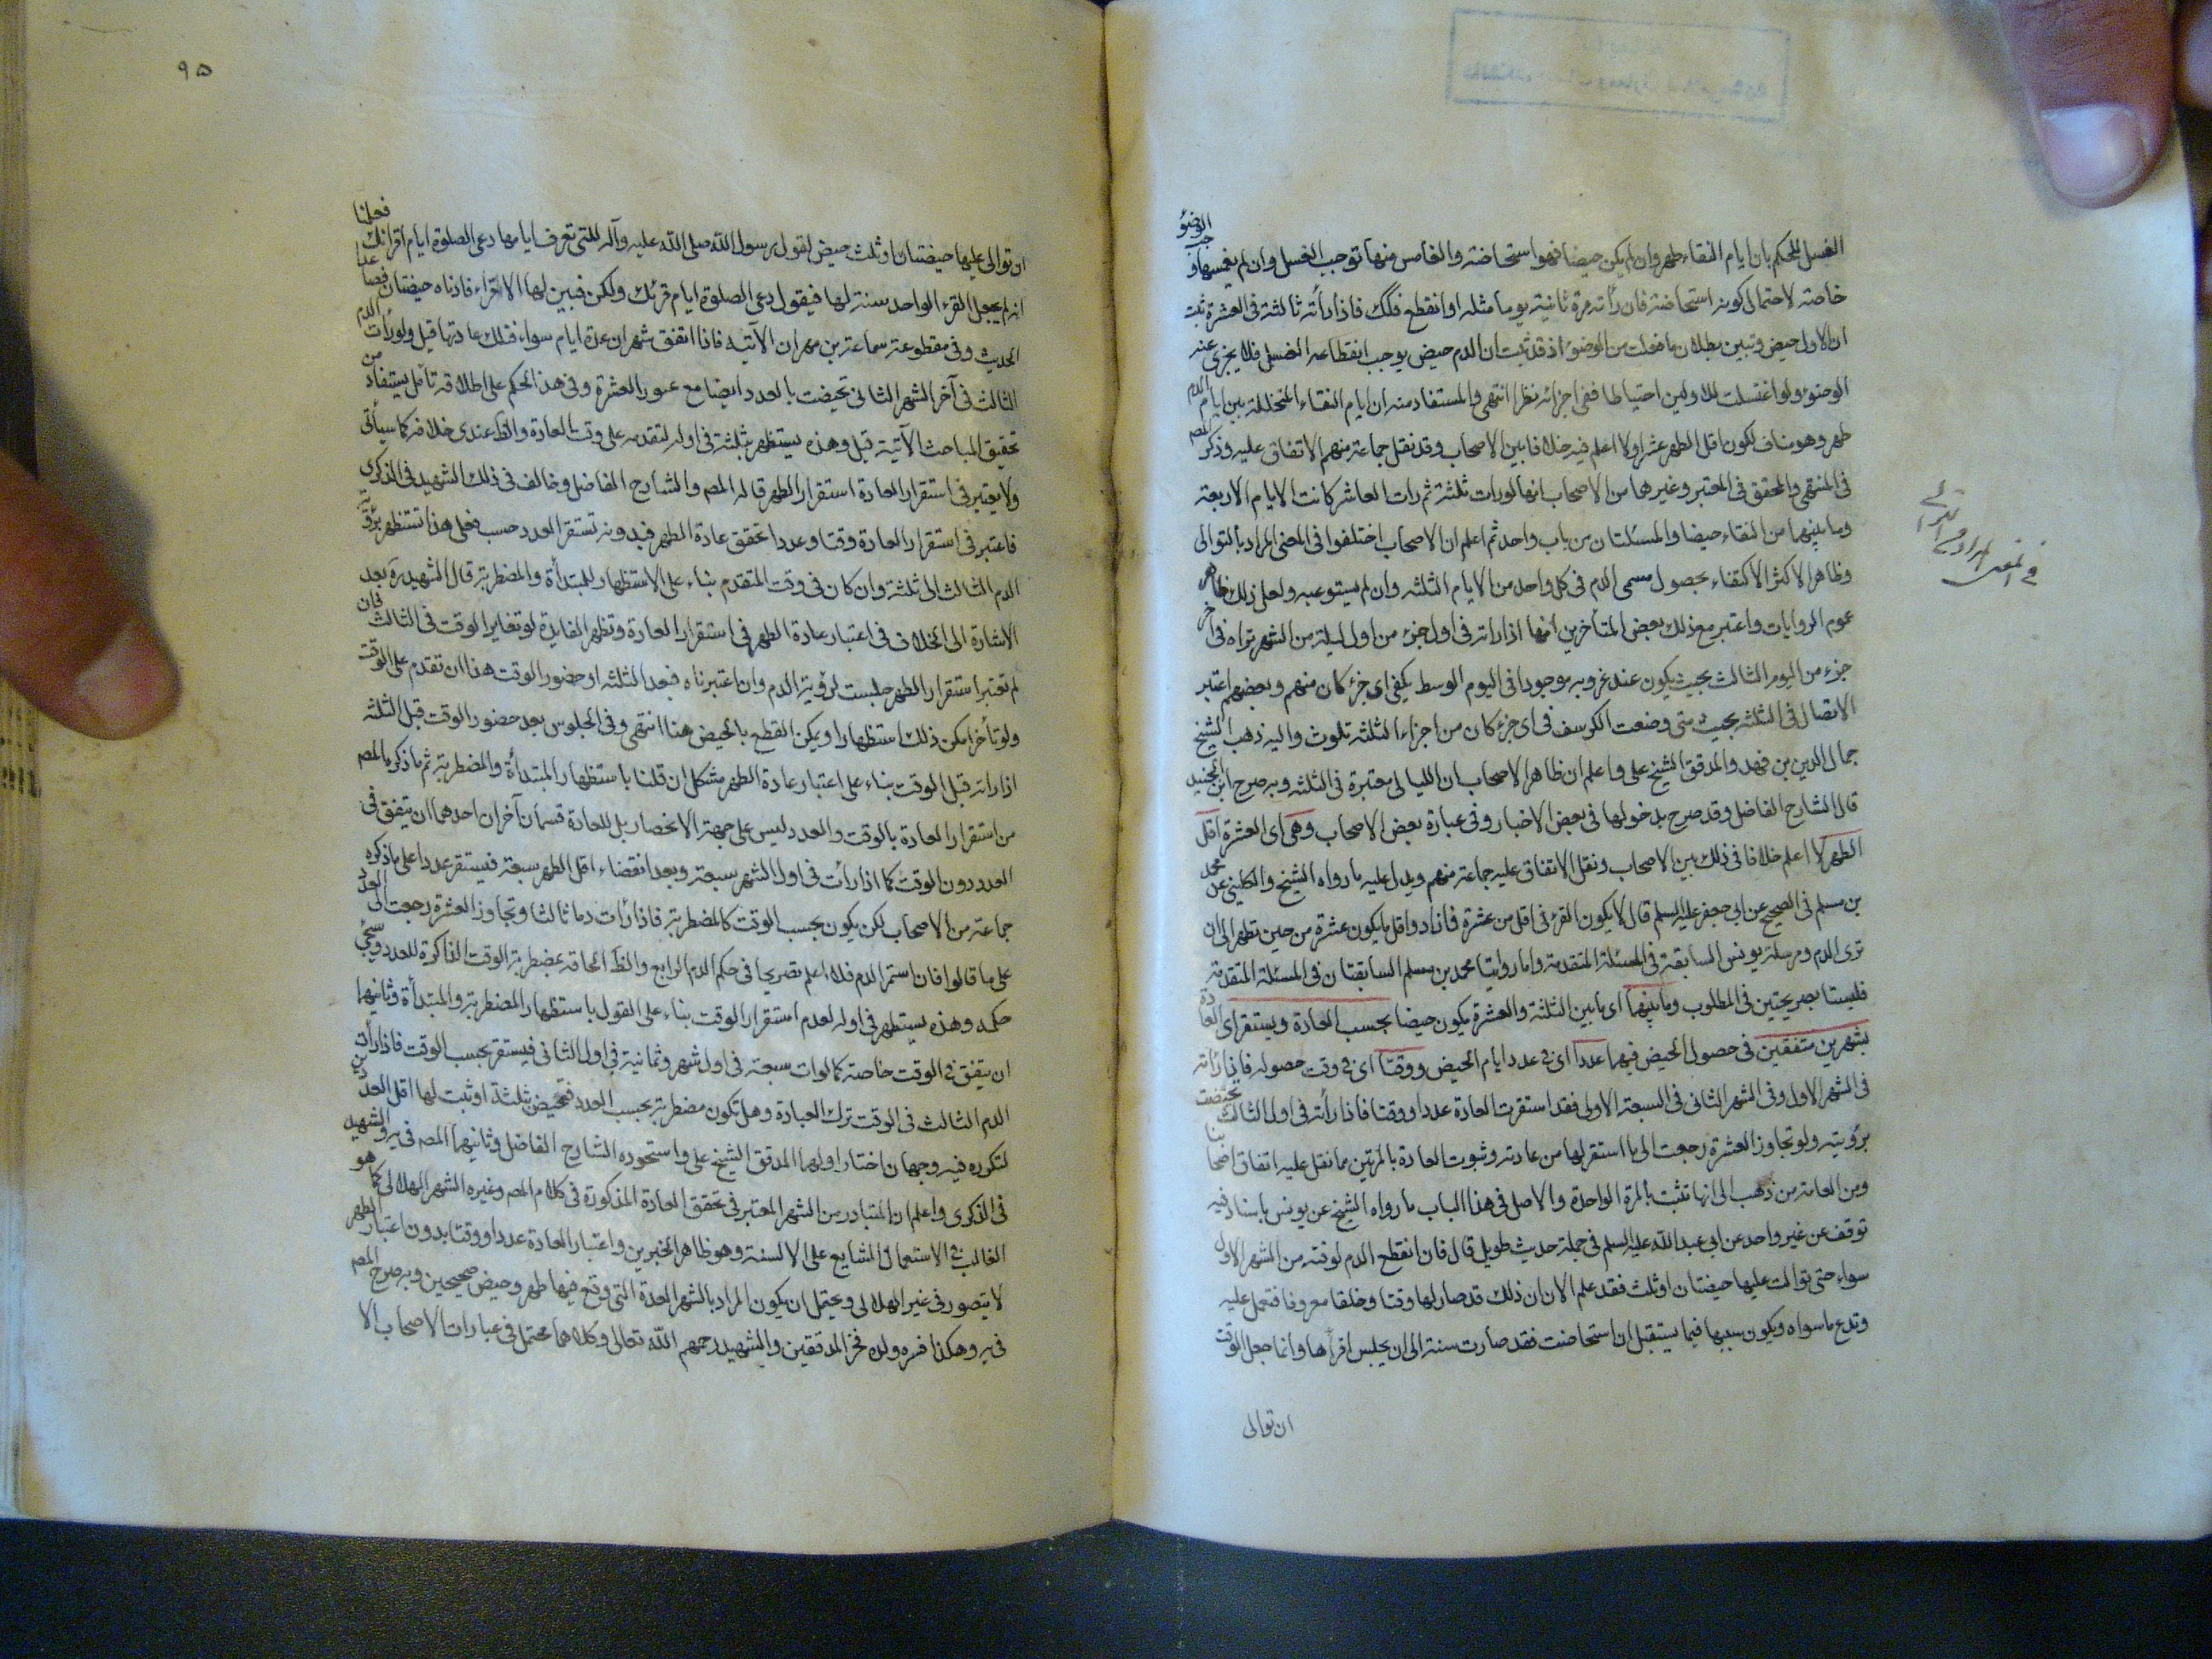 الغسل للحكم بان ايام النقاء طهر وان لم يكن حيضا فهو استحاضة والغامس منها توجب الغسل وان لم يغمسها وجب الوضوء
خاصة لاحتمال كونه استحاضة فان رأته مرة ثانية يوما مثله او انقطع فكك فاذا رأته ثالثة فى العشرة ثبت
ان الاول حيض وتبين بطلان ما فعلت من الوضوء اذ قد ثبت ان الدم حيض يوجب انقطاعه الغسل فلا يجزى عنه
الوضوء ولو اغتسلت للاولين احتياطا ففى اجزائه نظر انتهى والمستفاد منه ان ايام النقاء المتخللة بين ايام الدم
طهر وهو مناف لكون اقل الطهر عشرا ولا اعلم فيه خلافا بين الاصحاب وقد نقل جماعة منهم الاتفاق عليه وذكر المص
فى المنتهى والمحقق فى المعتبر وغيرهما من الاصحاب انها لو رات ثلثة ثم رات العاشر كانت الايام الاربعة
وما بينهما من النقاء حيضا والمسئلتان من باب واحد ثم اعلم ان الاصحاب اختلفوا فى المعنى المراد بالتوالى
وظاهر الاكثر الاكتفاء بحصول مسمى الدم فى كل واحد من الايام الثلثه وان لم يستوعبه ولعل ذلك ظاهر
عموم الروايات واعتبر مع ذلك بعض المتأخرين انها اذا راته فى اول جزء من اول ليلة من الشهر تراه فى آخر
جزء من اليوم الثالث بحيث يكون عند غروبه موجودا فى اليوم الوسط يكفى اى جزء كان منهم وبعضهم اعتبر
الاتصال فى الثلثه بحيث متى وضعت الكرسف فى اى جزء كان من اجزاء الثلثه تلوث واليه ذهب الشيخ
جمال الدين بن فهد والمدقق الشيخ على واعلم ان ظاهر الاصحاب ان الليالى معتبرة فى الثلثه وبه صرح ابن الجنيد
قال الشارح الفاضل وقد صرح بدخولها فى بعض الاخبار وفى عبارة بعض الاصحاب وهى اى العشرة اقل
الطهر لا اعلم خلافا فى ذلك بين الاصحاب ونقل الاتفاق عليه جماعة منهم ويدل عليه ما رواه الشيخ والكلينى عن محمد
بن مسلم فى الصحيح عن ابى جعفر عليه السلم قال لا يكون القرء فى اقل من عشرة فما زاد واقل ما يكون عشرة من حين تطهر الى ان
ترى الدم ومرسلة يونس السابقة فى المسئلة المتقدمة واما روايتا محمد بن مسلم السابقتان فى المسئلة المتقدمة
فليستا بصريحتين فى المطلوب وما بينهما اى ما بين الثلثة والعشرة يكون حيضا بحسب العادة ويستقر اى العادة
بشهرين متفقين فى حصول الحيض فيهما عددا اى فى عدد ايام الحيض ووقتا اى فى وقت حصوله فاذا رأته
فى الشهر الاول وفى الشهر الثانى فى السبعة الاولى فقد استقرت العادة عددا ووقتا فاذا رأته فى اول الثالث تحيضت
برؤيته ولو تجاوز العشرة رجعت الى ما استقر لها من عادته وثبوت العادة بالمرتين مما نقل عليه اتفاق اصحابنا
ومن العامة من ذهب الى انها تثبت بالمرة الواحدة والاصل فى هذا الباب ما رواه الشيخ عن يونس باسناد فيه
توقف عن غير واحد عن ابى عبد الله عليه السلم فى جملة حديث طويل قال فان انقطع الدم لوقته من الشهر الاول
سواء حتى توالت عليها حيضتان او ثلث فقد علم الان ان ذلك قد صار لها وقتا وخلقا معروفا فتعمل عليه
وتدع ما سواه ويكون سببها فيما يستقبل ان استحاضت فقد صارت سنة الى ان يجلس اقرائها وانما جعل الوقت
ان توالى
فى المعنى المراد من التوالى
٩٥
ان توالى عليها حيضتان او ثلث حيض لقول رسول الله صلى الله عليه وآله للتى تعرف ايامها دعى الصلوة ايام اقرائك فعلمنا
انه لم يجعل القرء الواحد سنة لها فيقول دعى الصلوة ايام قرئك ولكن فبين لها الاقراء فادناه حيضتان فصاعدا
الحديث وفى مقطوعة سماعة بن مهران الآتيه فاذا اتفق شهران عدة ايام سواء فتلك عادتها قيل ولو رأت الدم
الثالث فى آخر الشهر الثانى تحيضت بالعدد ايضا مع عبور العشرة وفى هذا الحكم على اطلاقه تأمل يستفاد من
تحقيق المباحث الآتية قبل وهذه يستظهر بثلثة فى اوله لتقدمه على وقت العادة والظ عندى خلافه كما سيأتى
ولا يعتبر فى استقرار العادة استقرار الطهر قاله المص والشارح الفاضل وخالف فى ذلك الشهيد فى الذكرى
فاعتبر فى استقرار العادة وقتا وعددا تحقق عادة الطهر فبدونه تستقر العدد حسب فعلى هذا تستظهر برؤية
الدم الثالث الى ثلثة وان كان فى وقت المتقدم بناء على الاستظهار للمبتدأة والمضطربة قال الشهيد ره بعد
الاشارة الى الخلاف فى اعتبار عادة الطهر فى استقرار العادة وتظهر الفايدة لو تغاير الوقت فى الثالث فان
لم تعتبر استقرار الطهر جلست لرؤية الدم وان اعتبرناه فبعد الثلثه او حضور الوقت هذا ان تقدم على الوقت
ولو تأخر امكن ذلك استظهارا ويمكن القطع بالحيض هنا انتهى وفى الجلوس بعد حضور الوقت قبل الثلثه
اذا راته قبل الوقت بناء على اعتبار عادة الطهر مشكل ان قلنا باستظهار المبتدأة والمضطربة ثم ما ذكره المص
من استقرار العادة بالوقت والعدد ليس على جهة الانحصار بل للعادة قسمان آخران احدهما ان يتفق فى
العدد دون الوقت كما اذا رأت فى اول الشهر سبعة وبعد انقضاء اقل الطهر سبعة فيستقر عددا على ما ذكره
جماعة من الاصحاب لكن يكون بحسب الوقت كالمضطربة فاذا رأت دما ثالثا وتجاوز العشرة رجعت الى العدد
على ما قالوا فان استمر الدم فلا اعلم تصريحا فى حكم الدم الرابع والظ الحاقه بمضطربة الوقت الذاكرة للعدد وسيجئ
حكمه وهذه يستظهر فى اوله لعدم استقرار الوقت بناء على القول باستظهار المضطربة والمبتدأة وثانيهما
ان يتفق فى الوقت خاصة كما لو رات سبعة فى اول شهر وثمانية فى اول الثانى فيستقر بحسب الوقت فاذا رأت
الدم الثالث فى الوقت ترك العبادة وهل تكون مضطربة بحسب العدد فتحيض بثلثة او ثبت لها اقل العددين
لتكرره فيه وجهان اختار اولهما المدقق الشيخ على واستجوده الشارح الفاضل وثانيهما المص فى يه والشهيد
فى الذكرى واعلم ان المتبادر من الشهر المعتبر فى تحقق العادة المذكورة فى كلام المص وغيره الشهر الهلالى كما هو
الغالب فى الاستعمال الشايع على الالسنة وهو ظاهر الخبرين واعتبار العادة عددا ووقتا بدون اعتبار الطهر
لا يتصور فى غير الهلالى ويحتمل ان يكون المراد بالشهر العدة التى وقع فيها طهر وحيض صحيحين وبه صرح المص
فى يه وهكذا فسره ولده فخر المدققين والشهيد رحمهم الله تعالى وكلاهما محتمل فى عبارات الاصحاب الا